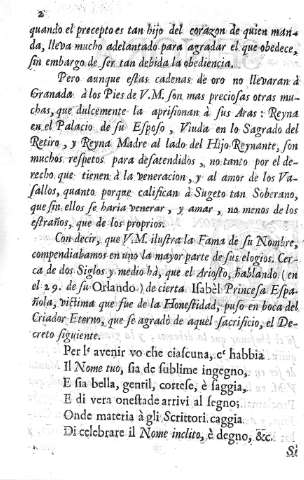 2
quando el precepto es tan hijo del corazon de quien man-
da, lleva mucho adelantado para agradar el que obedece,
sin embargo de ser tan debida la obediencia.
Pero aunque estas cadenas de oro no llevaràn à
Granada à los Pies de V.M. son mas preciosas otras mu-
chas, que dulcemente la aprisionan à sus Aras: Reyna
en el Palacio de su Esposo, Viuda en lo Sagrado del
Retiro, y Reyna Madre al lado del Hijo Reynante, son
muchos respetos para desatendidos, no tanto por el de-
recho que tienen à la veneracion, y al amor de los Va-
sallos, quanto porque califican à Sugeto tan Soberano,
que sin ellos se haria venerar, y amar, no menos de los
estraños, que de los proprios.
Con decir, que V.M. ilustra la Fama de su Nombre,
compendiabamos en uno la mayor parte de sus elogios. Cer-
ca de dos Siglos y medio hà, que el Ariosto, hablando (en
el 29. de su Orlando) de cierta Isabèl Princesa Espa-
ñola, victima que fue de la Honestidad, puso en boca del
Criador Eterno, que se agradò de aquel sacrificio, el De-
creto siguiente.
Per l' avenir vo che ciascuna, c' habbia
Il Nome tuo, sia de sublime ingegno,
E sia bella, gentil, cortese, è saggia,
E di vera onestade arrivi al segno;
Onde materia à gli Scrittori caggia
Di celebrare il Nome inclito, è degno, &c.
Si